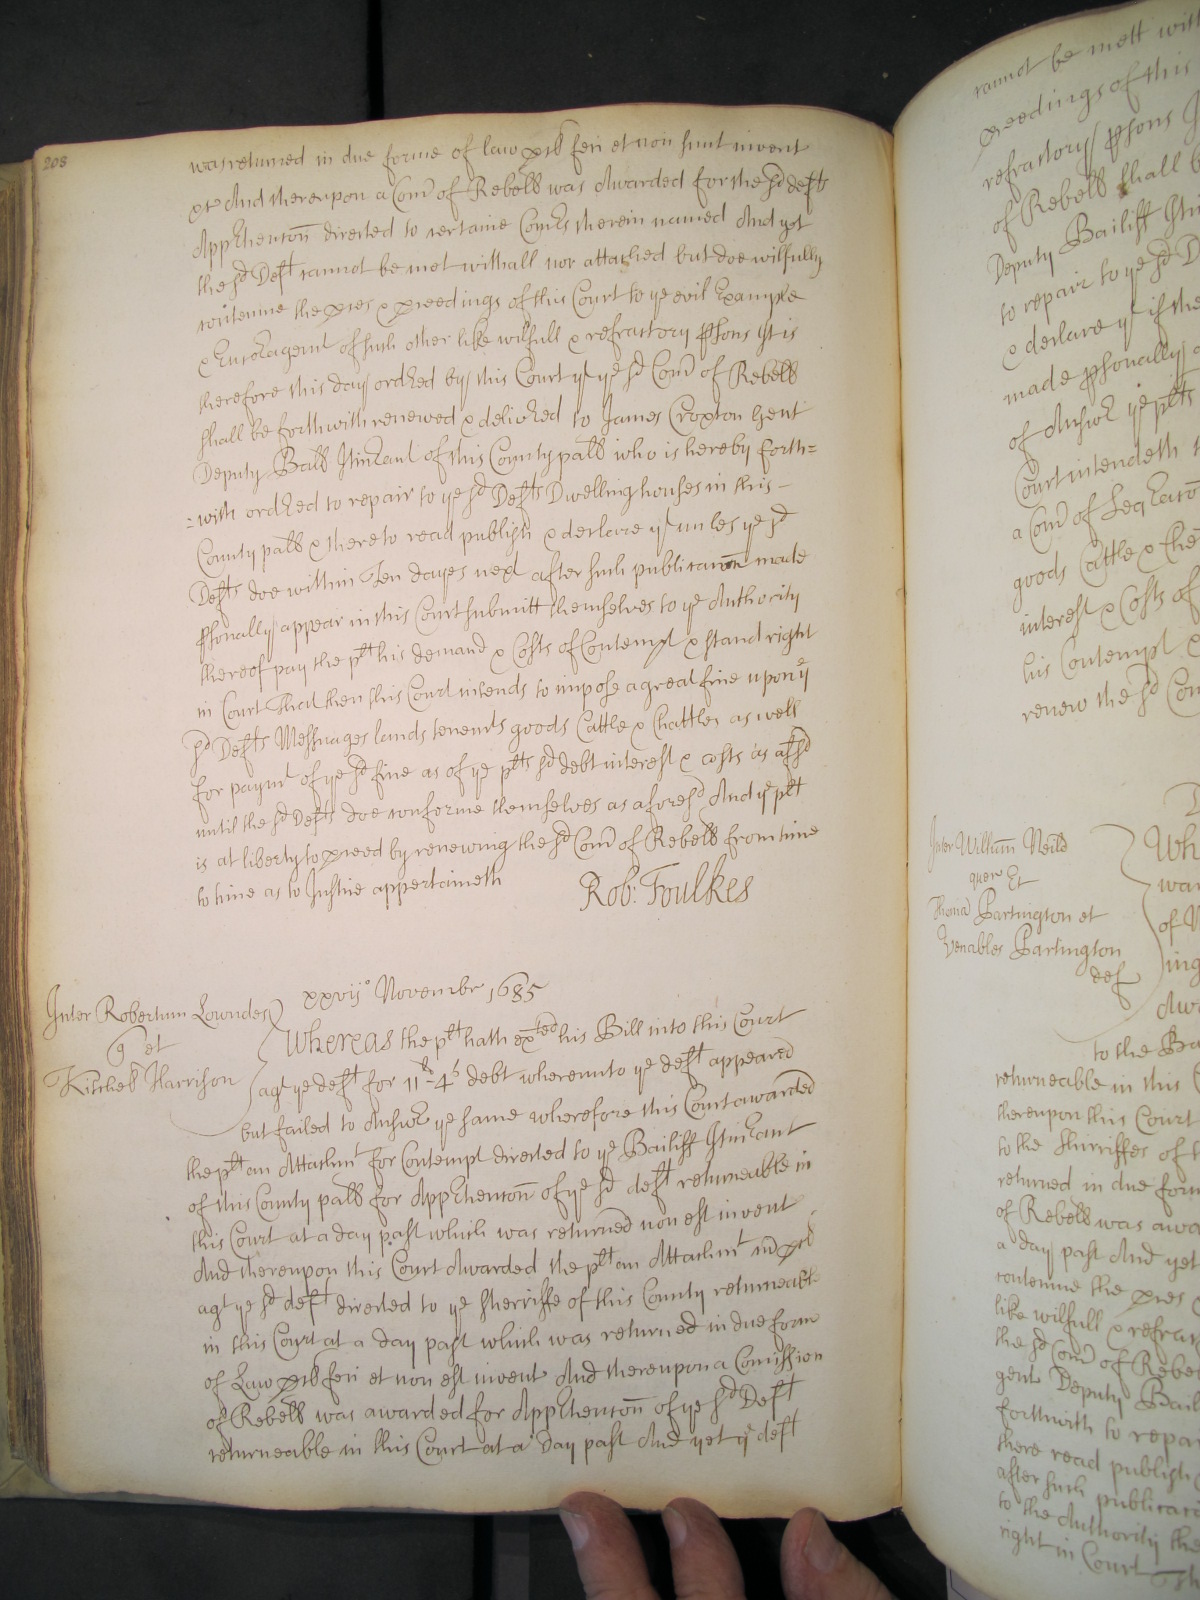 208
was returned in due forme of law feci et non sunt invent
And thereupon a Com͠ of Rebell was Awarded for the sd defts
App'hencon̄ directed to certaine Com'rs therein named And yet
the sd Deft cannot be met withall nor attached but doe wilfully
contemne the p'ces & p'ceedings of this Court to ye evil Example
& Encoragemt of such other like wilfull & refractory p'sons It is
therefore this day ord'ed by this Court yt ye sd Com͠ of Rebell
shall be forthwith renewed & deliv'ed to James Croxton Gent
Deputy Ball Itin'ant of this County pall who is hereby forth=
=with ord'ed to repair to ye sd Defts Dwelling houses in this -
County pall & there to read publish & declare yt unles ye sd
Defts doe within Ten dayes next after such publicacon̄ made
p'sonally appear in this Court submitt themselves to ye Authority
thereof pay the plt his demand & Costs of Contempt & stand right
in Court That then this Court intends to impose a great fine upon ye
sd Defts Messuages lands tenemts goods Cattle & Chattles as well
for paymt of ye sd fine as of ye plts sd debt interest & costs as afsd
until the sd Defts doe conforme themselves as aforesd And ye plt
is at liberty to p'ceed by renewing the sd Com͠ of Rebell from time
to time as to Justice appertaineth
Rob: Foulkes
xxvijo Novembr 1685
Inter Robertum Lowndes
q et
Kitchell Harrison
Whereas the plt hath exted his Bill into this Court
agt ye deft for 11li-4s debt whereunto ye deft appeared
but failed to Answ' ye same wherefore this Court awarded
the plt an Attachmt for Contempt directed to ye Bailiff Itin'ant
of this County pall for App'hencon̄ of ye sd deft returneable in
this Court at a day past which was returned non est invent
And thereupon this Court Awarded the plt an Attachmt
agt ye sd deft directed to ye Sherriffe of this County returneable
in this Court at a day past which was returned in due form
of Law feci et non est invent And thereupon a Comission
of Rebell was awarded for App'hencon̄ of ye sd Deft
returneable in this Court at a day past And yet ye deft
cannot be mett with
p'ceedings of this
refractory p'sons
of Rebell shall b
Deputy Bailiff Itin
to repair to ye sd D
& declare yt if the
made p'sonally a
of Answ' ye plts
Court intendeth
a Com͠ of Seq'acon̄
goods Cattle & Cha
interest & Costs of
his Contempt &
renew the sd Com
Inter Willum̄ Neild
quer Et
Thoma Bartington et
Venables Bartington
def
Wh
war
of
ing
Awa
to the Ba
returneable in this
thereupon this Court
to the Sherriffes of
returned in due form
of Rebell was awa
a day past And yet
contemne the p'ces
like wilfull & refrac
the sd Com͠ of Rebe
gent Deputy Bail
forthwith to repa
there read publish
after such publicac
to the Authority the
right in Court Th